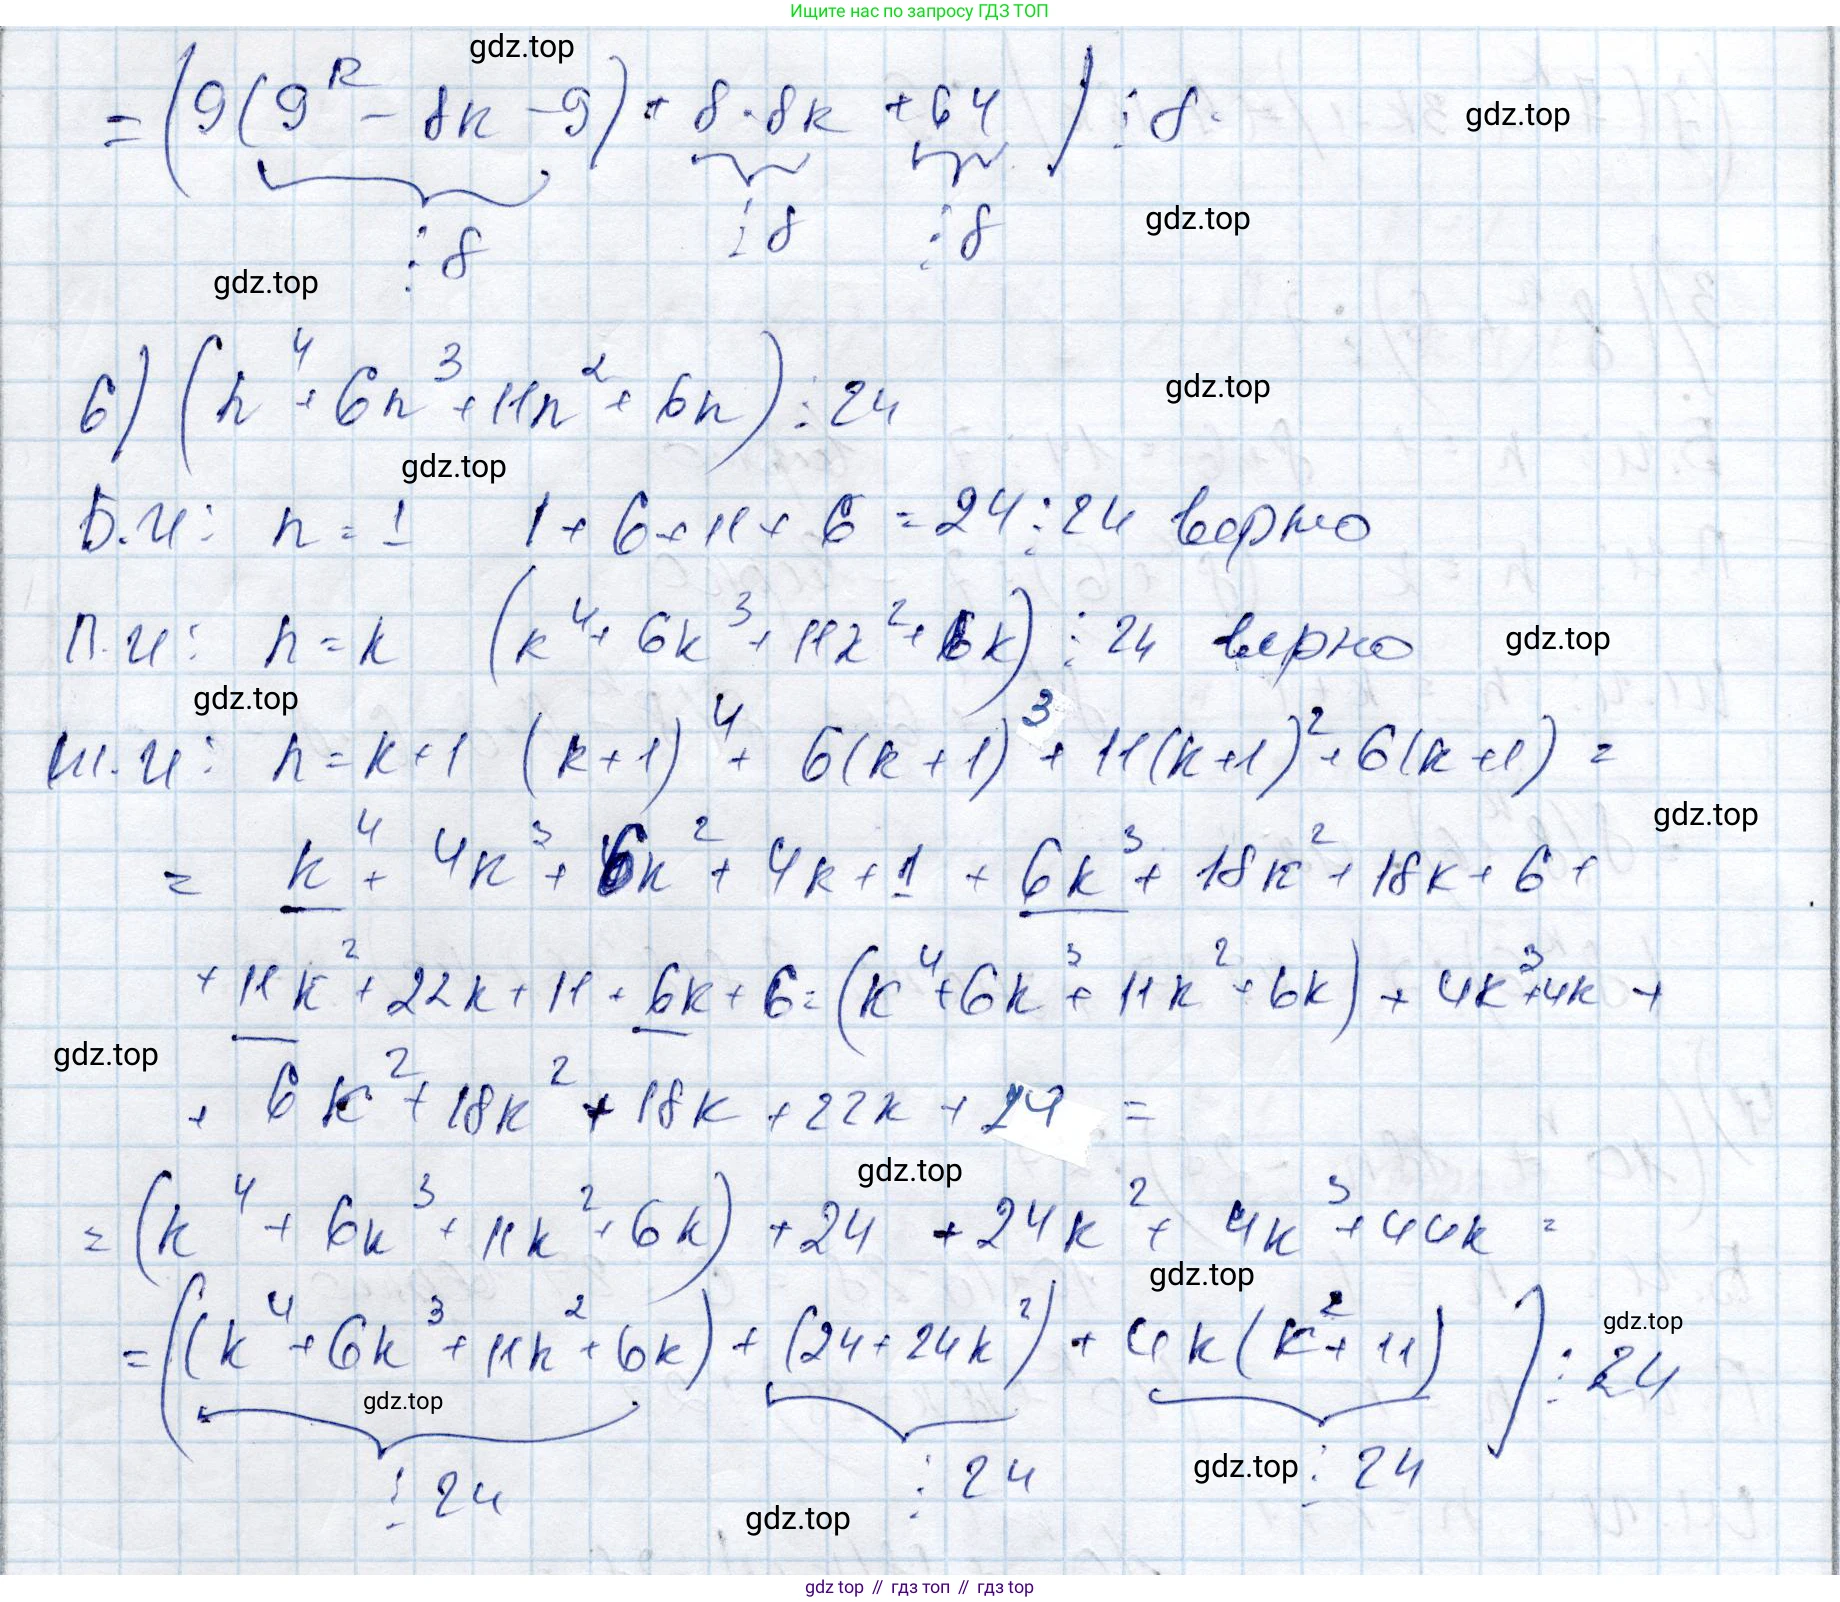 Ищите нас по запросу ГДЗ ТОП
gdz.top
= (9(9^k - 8k - 9) + 8·8k + 64) ⋮ 8.
gdz.top
⋮ 8 ⋮ 8 ⋮ 8
gdz.top
gdz.top
6) (n^4 + 6n^3 + 11n^2 + 6n) ⋮ 24
gdz.top
gdz.top
Б.И: n = 1 1 + 6 + 11 + 6 = 24 ⋮ 24 верно
П.И: n = k (k^4 + 6k^3 + 11k^2 + 6k) ⋮ 24 верно
gdz.top
gdz.top
Ш.И: n = k+1 (k+1)^4 + 6(k+1)^3 + 11(k+1)^2 + 6(k+1) =
gdz.top
= k^4 + 4k^3 + 6k^2 + 4k + 1 + 6k^3 + 18k^2 + 18k + 6 +
+ 11k^2 + 22k + 11 + 6k + 6 = (k^4 + 6k^3 + 11k^2 + 6k) + 4k^3 + 4k +
gdz.top
+ 6k^2 + 18k^2 + 18k + 22k + 24 =
gdz.top
= (k^4 + 6k^3 + 11k^2 + 6k) + 24 + 24k^2 + 4k^3 + 44k =
gdz.top
= ((k^4 + 6k^3 + 11k^2 + 6k) + (24 + 24k^2) + 4k(k^2 + 11)) ⋮ 24
gdz.top
gdz.top
⋮ 24 ⋮ 24 ⋮ 24
gdz.top
gdz.top
gdz top // гдз топ // гдз top